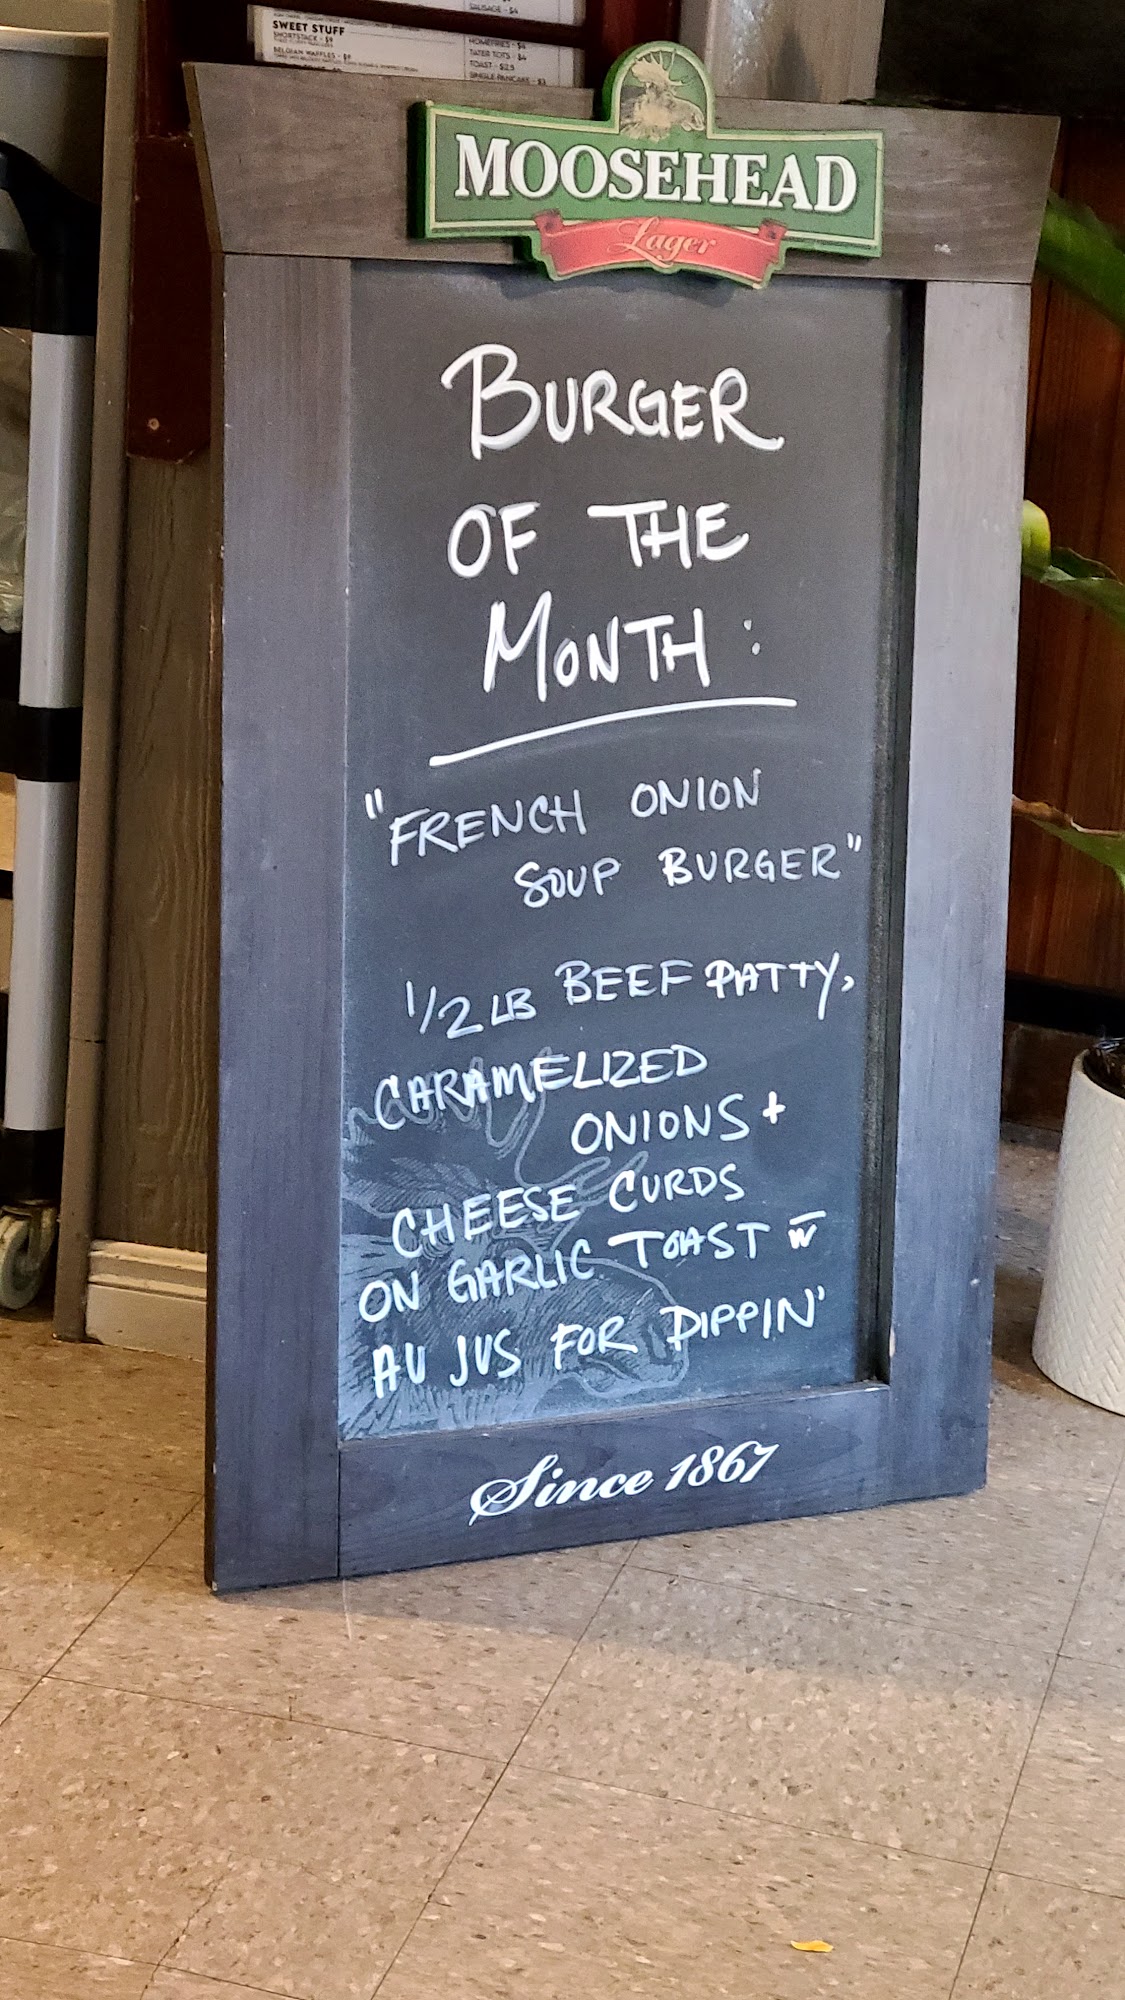 SAUSAGE - $4
SWEET STUFF
SHORTSTACK - $9
BELGIAN WAFFLES - $9
HOMEFRIES - $4
TATER TOTS - $4
TOAST - $2.5
SINGLE PANCAKE - $3
MOOSEHEAD
Lager
BURGER
OF THE
MONTH:
"FRENCH ONION
SOUP BURGER"
1/2 LB BEEF PATTY,
CARAMELIZED
ONIONS +
CHEESE CURDS
ON GARLIC TOAST w̅
AU JUS FOR DIPPIN'
Since 1867